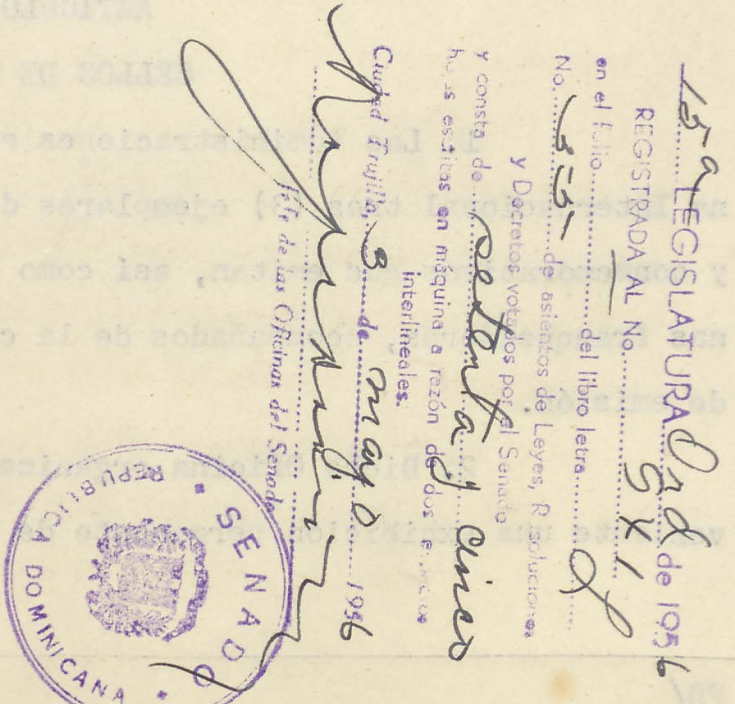 15ª LEGISLATURA Ord de 1956
REGISTRADA AL No. 541
en el folio del libro letra
No. 55 de asientos de Leyes, Resoluciones
y Decretos votados por el Senado
y consta de setenta y cinco
hojas escritas en máquina a razón de dos espacios
interlineales.
Ciudad Trujillo, 9 de mayo 1956
Jefe de las Oficinas del Senado
SENADO
REPUBLICA DOMINICANA